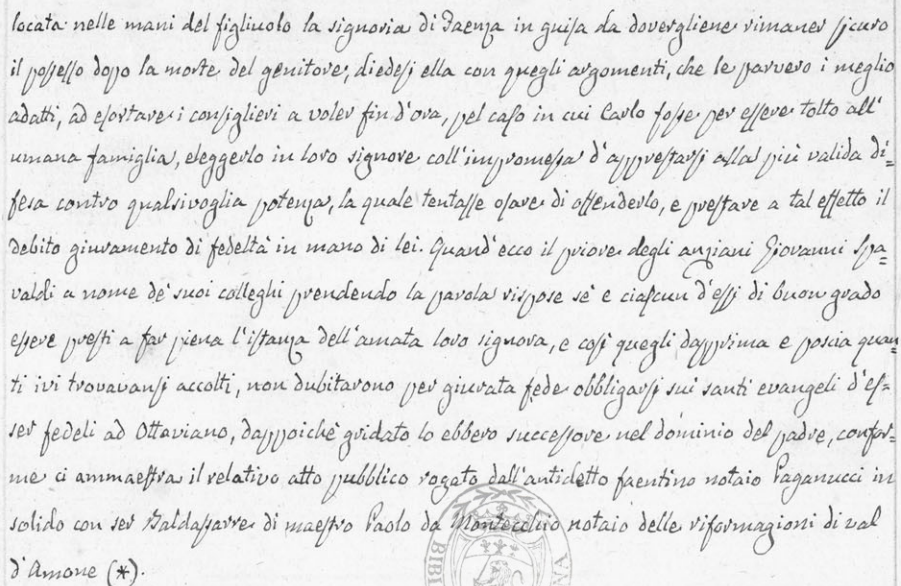 locata nelle mani del figliuolo la signoria di Faenza in guisa da dovergliene rimaner sicuro
il possesso dopo la morte del genitore, diedesi ella con quegli argomenti, che le parvero i meglio
adatti, ad esortare i consiglieri a voler fin d'ora, pel caso in cui Carlo fosse per essere tolto all'
umana famiglia, eleggerlo in loro signore coll'impromessa d'apprestarsi alla più valida di=
fesa contro qualsivoglia potenza, la quale tentasse osare di offenderlo, e prestare a tal effetto il
debito giuramento di fedeltà in mano di lei. Quand'ecco il priore degli anziani Giovanni Spa=
valdi a nome de' suoi colleghi prendendo la parola rispose sè e ciascun d'essi di buon grado
essere presti a far piena l'istanza dell'amata loro signora, e così quegli dapprima e poscia quan=
ti ivi trovavansi accolti, non dubitarono per giurata fede obbligarsi sui santi evangeli d'es=
ser fedeli ad Ottaviano, dappoichè gridato lo ebbero successore nel dominio del padre, confor=
me ci ammaestra il relativo atto pubblico rogato dall'antidetto faentino notaio Paganucci in
solido con ser Baldassarre di maestro Paolo da Montecchio notaio delle riformagioni di val
d'Amone (*).
BIBL